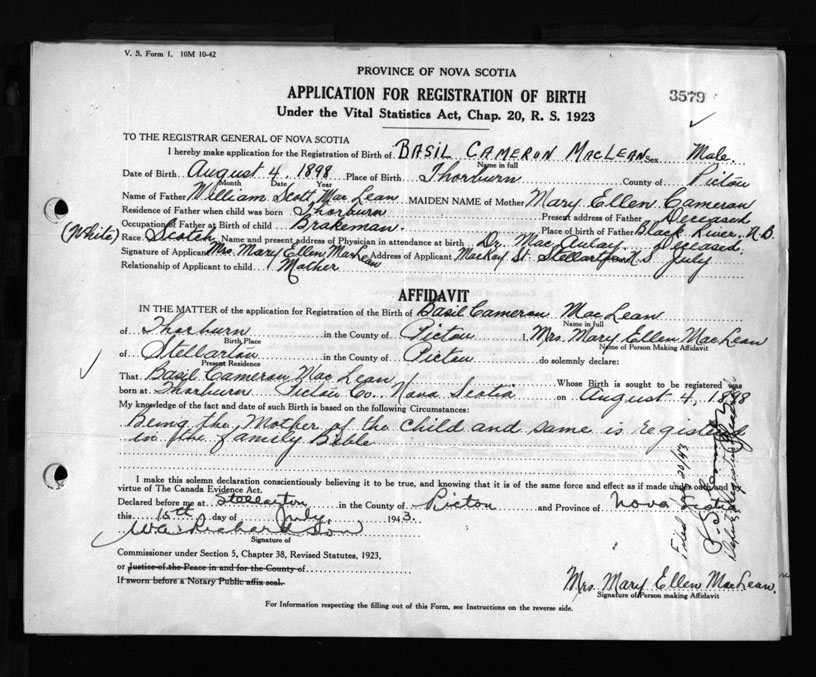 V. S. Form 1. 10M 10-42
PROVINCE OF NOVA SCOTIA
APPLICATION FOR REGISTRATION OF BIRTH
3579
Under the Vital Statistics Act, Chap. 20, R. S. 1923
TO THE REGISTRAR GENERAL OF NOVA SCOTIA
I hereby make application for the Registration of Birth of BASIL CAMERON MACLEAN Sex Male.
Name in full
Date of Birth August 4, 1898 Place of Birth Thorburn County of Pictou
Month Date Year
Name of Father William Scott MacLean MAIDEN NAME of Mother Mary Ellen Cameron
Residence of Father when child was born Thorburn Present address of Father Deceased
Occupation of Father at Birth of child Brakeman. Place of birth of Father Black River, N.B.
(White) Race Scotch Name and present address of Physician in attendance at birth Dr. MacAulay Deceased.
Signature of Applicant Mrs. Mary Ellen MacLean Address of Applicant MacKay St. Stellarton N.S July
Relationship of Applicant to child Mother
AFFIDAVIT
IN THE MATTER of the application for Registration of the Birth of Basil Cameron MacLean
Name in full
of Thorburn in the County of Pictou I, Mrs. Mary Ellen MacLean
Birth Place Name of Person Making Affidavit
of Stellarton in the County of Pictou do solemnly declare:
Present Residence
That Basil Cameron MacLean Whose Birth is sought to be registered was
born at Thorburn Pictou Co., Nova Scotia on August 4, 1898
My knowledge of the fact and date of such Birth is based on the following Circumstances:
Being the Mother of the child and same is registered
in the family Bible
I make this solemn declaration conscientiously believing it to be true, and knowing that it is of the same force and effect as if made under oath and by
virtue of The Canada Evidence Act.
Declared before me at Stellarton in the County of Pictou and Province of Nova Scotia
this 15th day of July, 1943.
W.A. Richardson
Signature of
Commissioner under Section 5, Chapter 38, Revised Statutes, 1923,
or Justice of the Peace in and for the County of
If sworn before a Notary Public affix seal.
Mrs. Mary Ellen MacLean.
Signature of Person making Affidavit
For Information respecting the filling out of this Form, see Instructions on the reverse side.
Filed